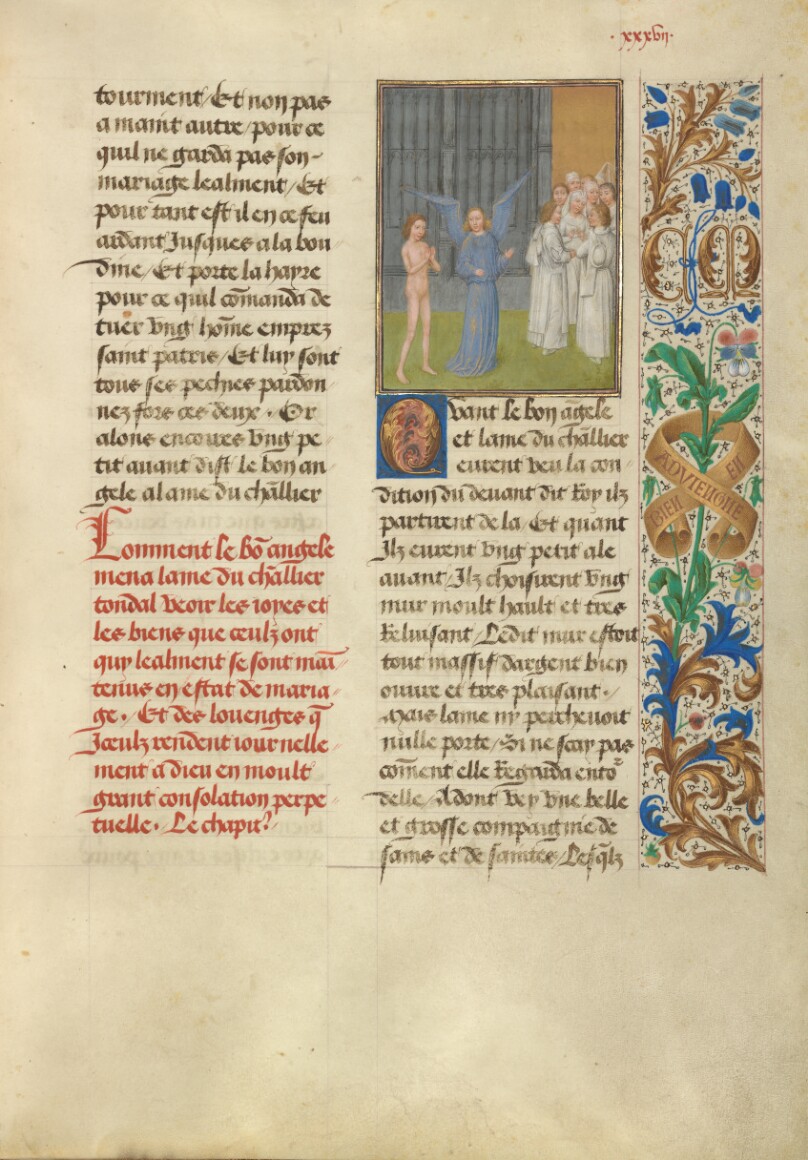 · xxxvij ·
tourment / Et non pas
a maint autre / pour ce
quil ne garda pas son-
mariage lealment / Et
pour tant est il en ce feu
ardant Jusques a la bou
dine / Et porte la hayre
pour ce quil cōmanda de
tuer vng hōme emprez
saint patris / Et luy sont
tous ses pechies pardon
nez fors ces deux · Or
alons encores vng pe
tit auant dist le bon an
gele a lame du chl̄lier
Comment le bō angele
mena lame du chl̄lier
tondal veoir les ioyes et
les biens que ceulz ont
quy lealment se sont mai
tenus en estat de maria-
ge · Et des louenges q̄
Jceulz rendent iournelle
ment a dieu en moult
grant consolation perpe
tuelle · Le chapitr̄
Quant le bon angele
et lame du chl̄lier
eurent veu la con
dition du deuant dit Roy ilz
partirent de la Et quant
Jlz eurent vng petit ale
auant / Jlz choisirent vng
mur moult hault et tres
Reluisant / Ledit mur estoit
tout massif dargent bien
ouure et tres plaisant ·
Mais lame ny percheuoit
nulle porte / Si ne scay pas
cōment elle Regarda ento
delle / Adont vey vne belle
et grosse compaignie de
sains et de saintes / Lesq̄lz
CM
BIEN EN ADVIENGNE